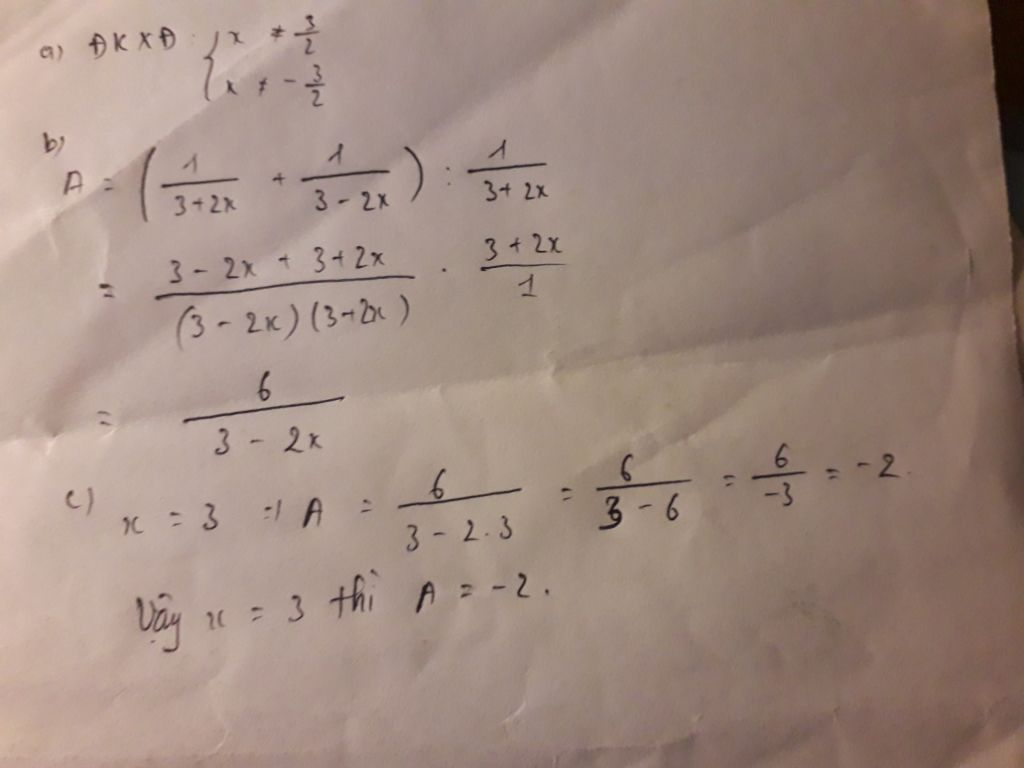 a) ĐKXĐ: { x ≠ 3/2
x ≠ - 3/2
b)
A = ( 1/(3+2x) + 1/(3-2x) ) : 1/(3+2x)
= (3-2x+3+2x)/((3-2x)(3+2x)) . (3+2x)/1
= 6/(3-2x)
c) x = 3 => A = 6/(3-2.3) = 6/(3-6) = 6/-3 = -2.
Vậy x = 3 thì A = -2.